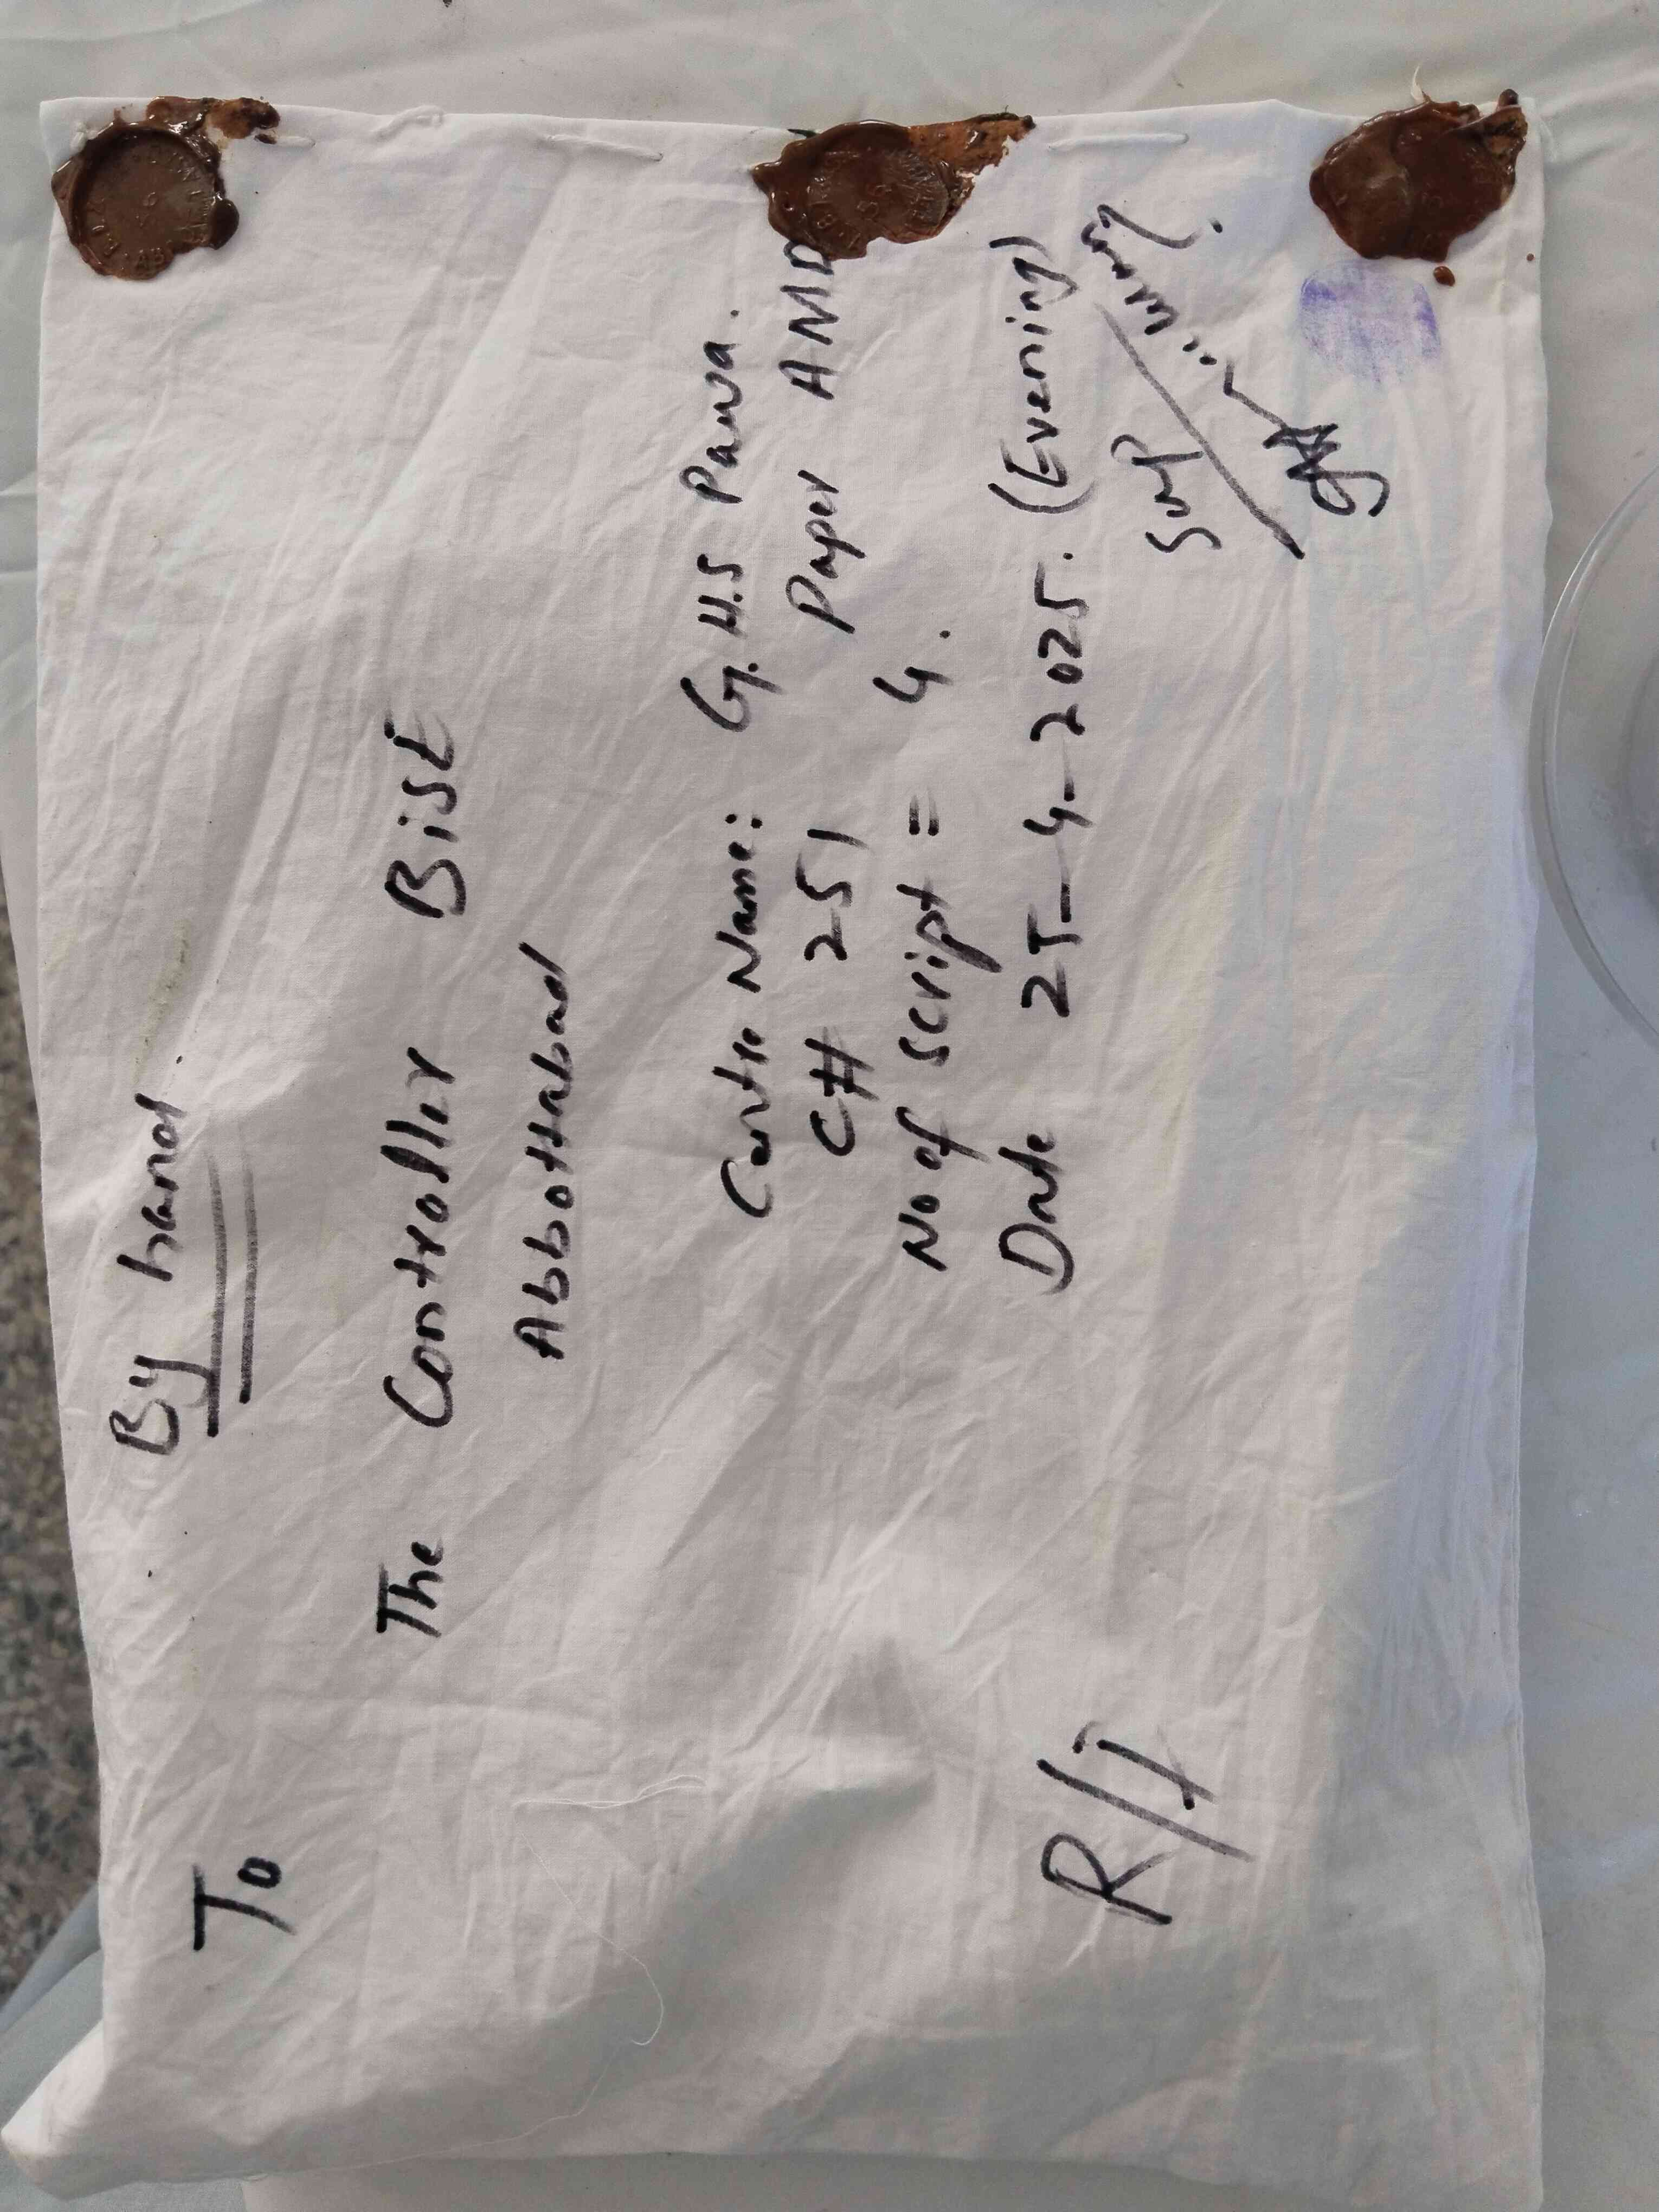 By hand.
To
The Controller BISE
Abbottabad
Centre Name: G.H.S Pawa.
C# 251 Paper AMD
No of Script = 4.
Date 25-4-2025. (Evening)
Sup
R/I